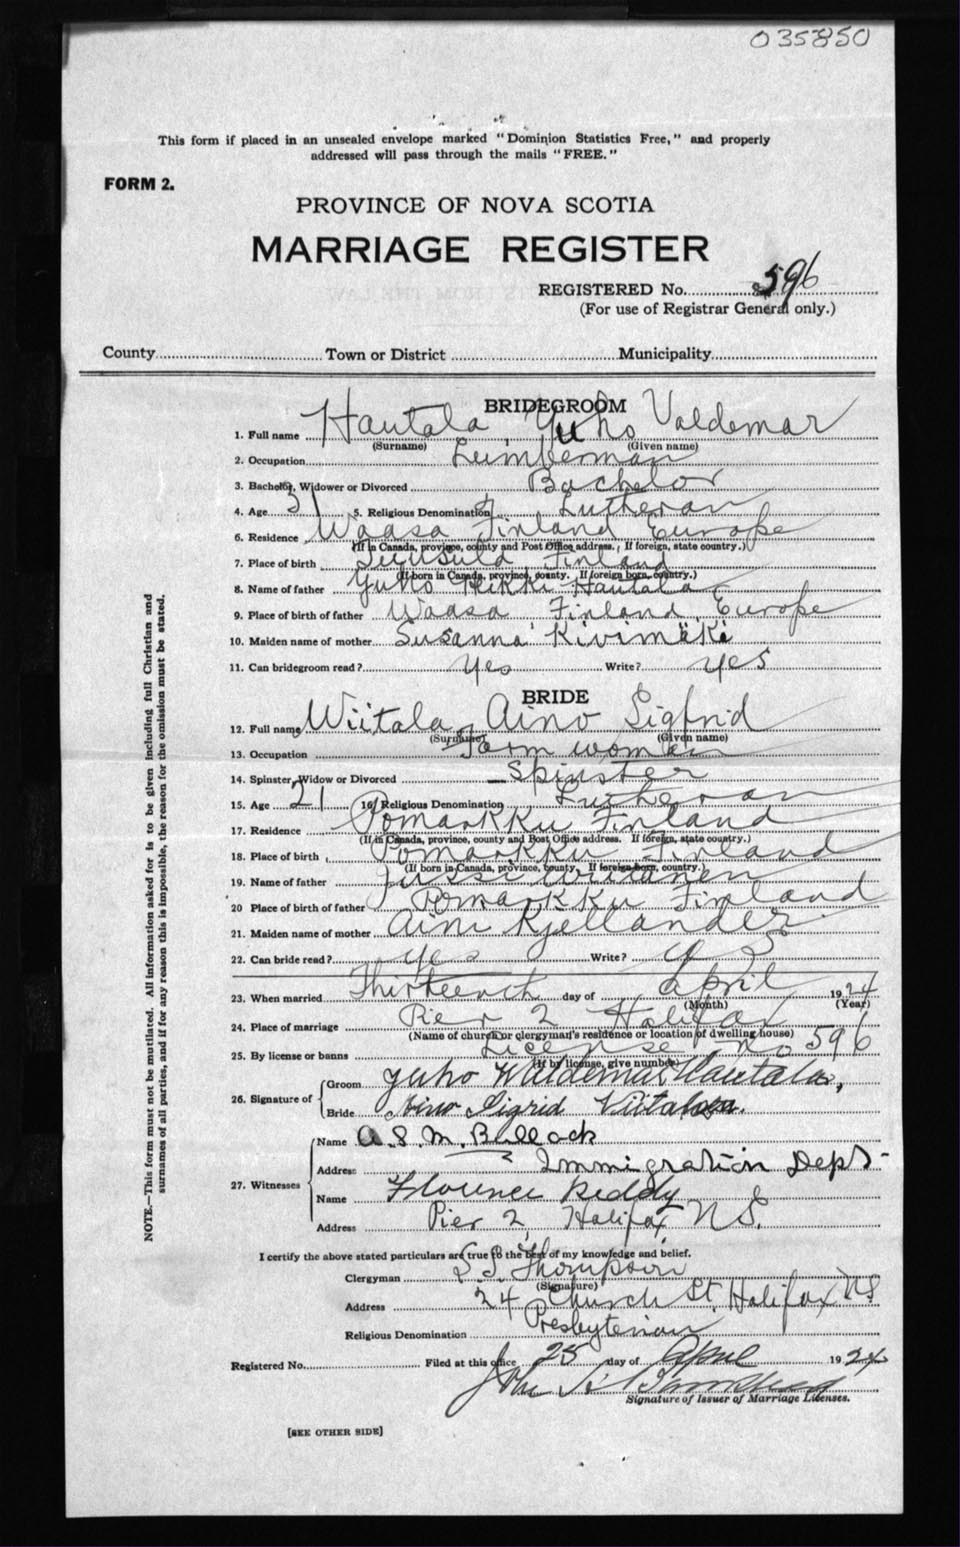 035850
This form if placed in an unsealed envelope marked "Dominion Statistics Free," and properly
addressed will pass through the mails "FREE."
FORM 2.
PROVINCE OF NOVA SCOTIA
MARRIAGE REGISTER
REGISTERED No. 596
(For use of Registrar General only.)
County Town or District Municipality
BRIDEGROOM
1. Full name Hautala Yuho Valdemar
(Surname) (Given name)
2. Occupation Lumberman
3. Bachelor, Widower or Divorced Bachelor
4. Age 31 5. Religious Denomination Lutheran
6. Residence Waasa Finland Europe
(If in Canada, province, county and Post Office address. If foreign, state country.)
7. Place of birth Finland
(If born in Canada, province, county. If foreign born, country.)
8. Name of father Yuho Heikki Hautala
9. Place of birth of father Waasa Finland Europe
10. Maiden name of mother Susanna Kivimäki
11. Can bridegroom read? Yes Write? yes
BRIDE
12. Full name Wiitala Aino Sigfrid
(Surname) (Given name)
13. Occupation Farm woman
14. Spinster, Widow or Divorced Spinster
15. Age 21 16. Religious Denomination Lutheran
17. Residence Pomarkku Finland
(If in Canada, province, county and Post Office address. If foreign, state country.)
18. Place of birth Pomarkku Finland
(If born in Canada, province, county. If foreign born, country.)
19. Name of father Jussi
20 Place of birth of father Pomarkku Finland
21. Maiden name of mother Aini Kjellander
22. Can bride read? yes Write? yes
23. When married Thirteenth day of April 1924
(Month) (Year)
24. Place of marriage Pier 2 Halifax
(Name of church or clergyman's residence or location of dwelling house)
25. By license or banns License no 596
(If by license, give number)
26. Signature of Groom Yuho Waldemar Hautala,
Bride Aino Sigrid
27. Witnesses Name A. S. M. Bullock
Address Immigration Dept
Name Florence Reddy
Address Pier 2, Halifax N.S.
I certify the above stated particulars are true to the best of my knowledge and belief.
Clergyman S. J. Thompson
(Signature)
Address 24 Church St. Halifax N.S.
Religious Denomination Presbyterian
Registered No. Filed at this office 25 day of April 1924
Signature of Issuer of Marriage Licenses.
[SEE OTHER SIDE]
NOTE.—This form must not be mutilated. All information asked for is to be given including full Christian and
surnames of all parties, and if for any reason this is impossible, the reason for the omission must be stated.